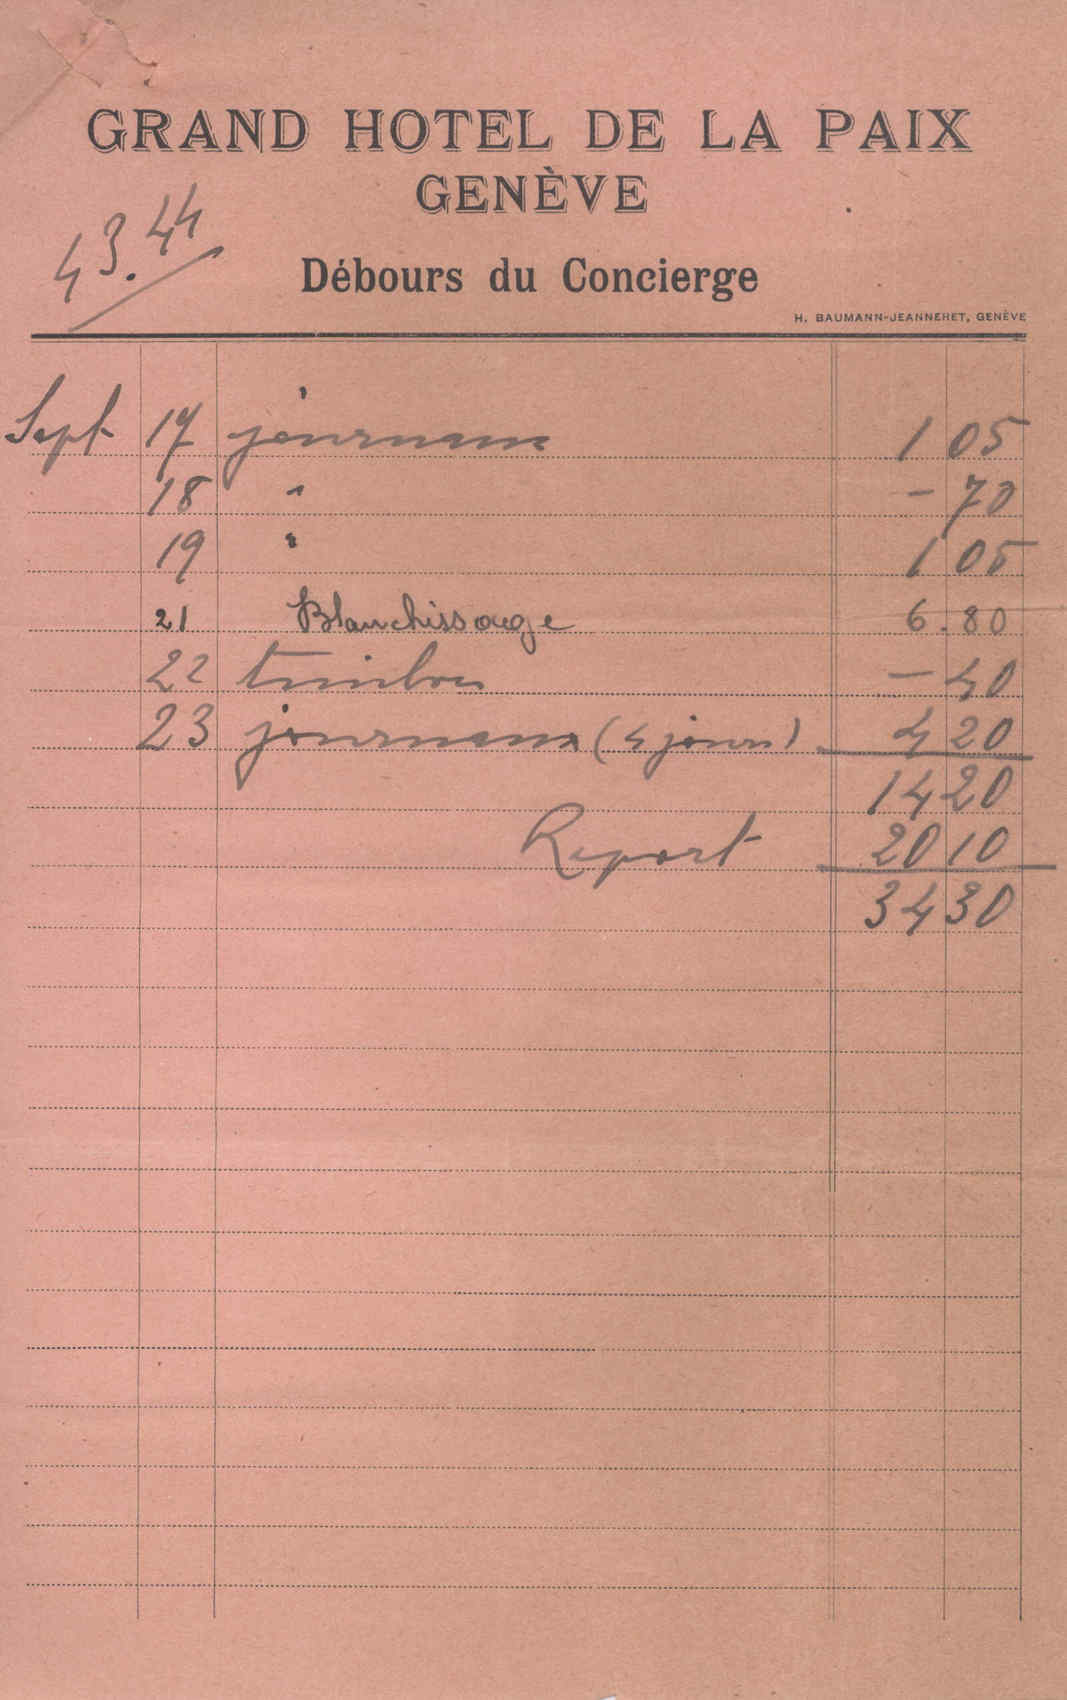 GRAND HOTEL DE LA PAIX
GENÈVE
43.44
Débours du Concierge
H. BAUMANN-JEANNERET, GENÈVE
Sept 17 journaux 1 05
18 " - 70
19 " 1 05
21 Blanchissage 6.80
22 timbres - 40
23 journaux (4 jours) 4 20
14 20
Report 20 10
34 30